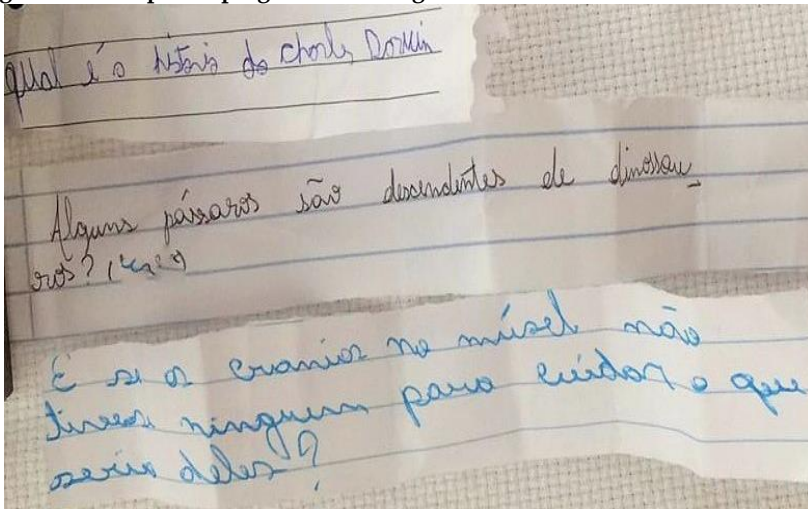 qual é o históris do Charles Dorwin
Alguns pássaros são descendentes de dinossau-
ros?
E si os cranios no músel não
tivesse ninguem para cuidar o que
seria deles?